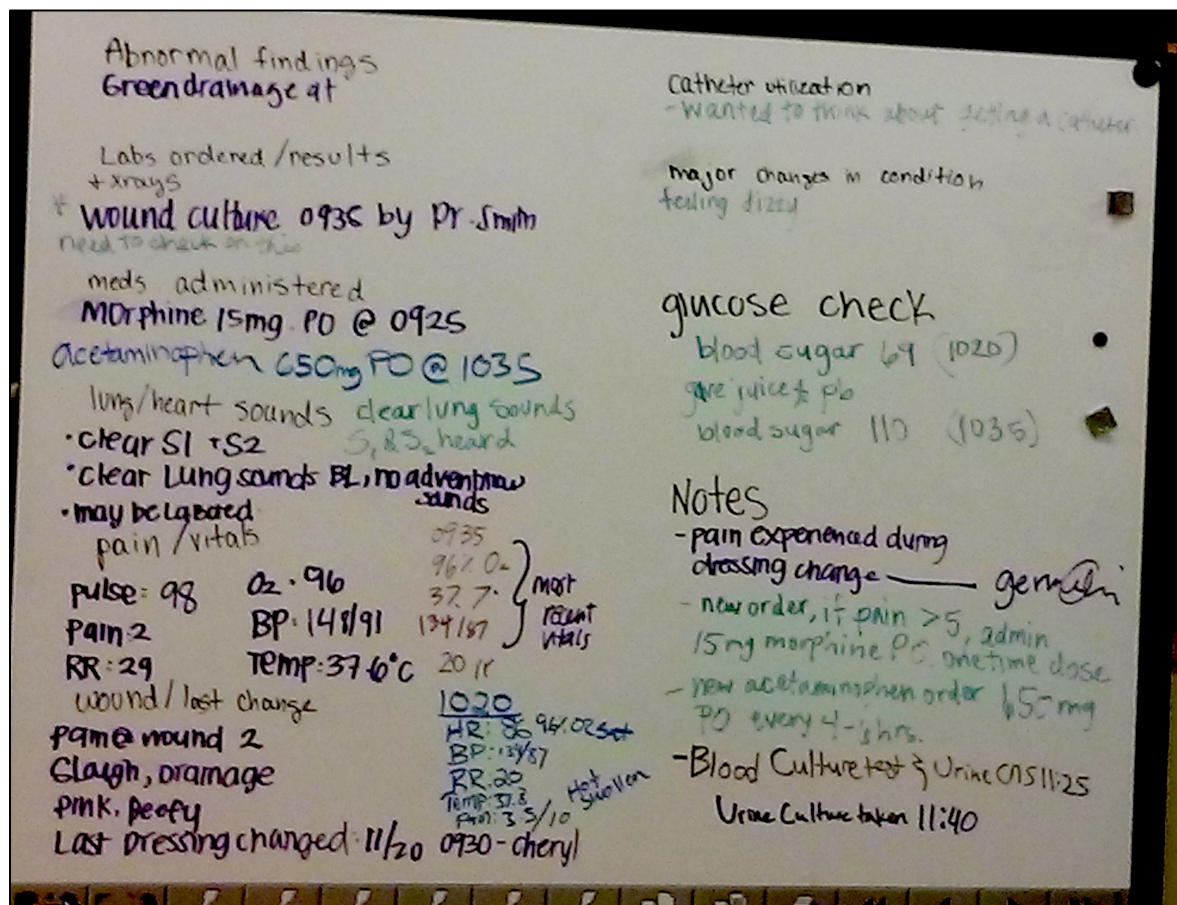 Abnormal findings
Green drainage at
Labs ordered/results
+ xrays
+ wound culture 0935 by Dr. Smith
need to check on this
meds administered
Morphine 15mg PO @ 0925
acetaminophen 650mg PO @ 1035
lung/heart sounds clear lung sounds
• clear S1 + S2 S1 & S2 heard
• clear Lung sounds BL, no adventitious sounds
• may be Labored
pain/vitals
pulse: 98 O2 • 96
Pain: 2 BP: 148/91
RR: 29 Temp: 37.6°C
0935
96% O2
37.7°
134/87
20 rr
most recent vitals
wound/last change
pain @ wound 2
Slough, Drainage
pink, beefy
Last Dressing changed: 11/20 0930 - cheryl
1020
HR: 86 96% O2 sat
BP: 134/87
RR: 20
Temp: 37.8
Pain: 3.5/10
Hot
swollen
Catheter utilization
- Wanted to think about getting a catheter
major changes in condition
feeling dizzy
glucose check
blood sugar 69 (1020)
gave juice & pb
blood sugar 110 (1035)
Notes
- pain experienced during
dressing change
- new order, if pain >5, admin
15mg morphine PO onetime dose
- new acetaminophen order 650 mg
PO every 4- hrs.
- Blood Culture test & Urine 11:25
Urine Culture taken 11:40